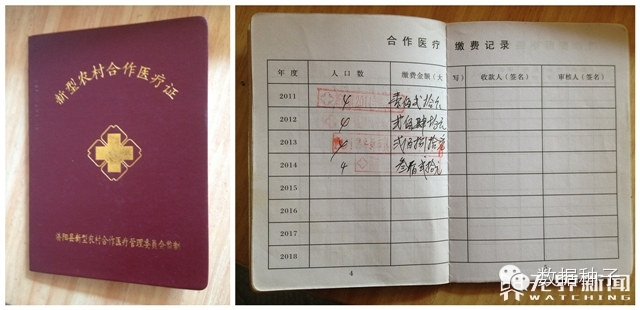 新型农村合作医疗证
阳县新型农村合作医疗管理委员会监制
合作医疗 缴费记录
年度 人口数 缴费金额(大 写) 收款人(签名) 审核人(签名)
2011 4 壹佰弍拾元
2012 4 弍佰肆拾元
2013 4 弍佰捌拾元
2014 4 叁佰弍拾元
2015
2016
2017
2018
4
数据种子
无界新闻
WATCHING